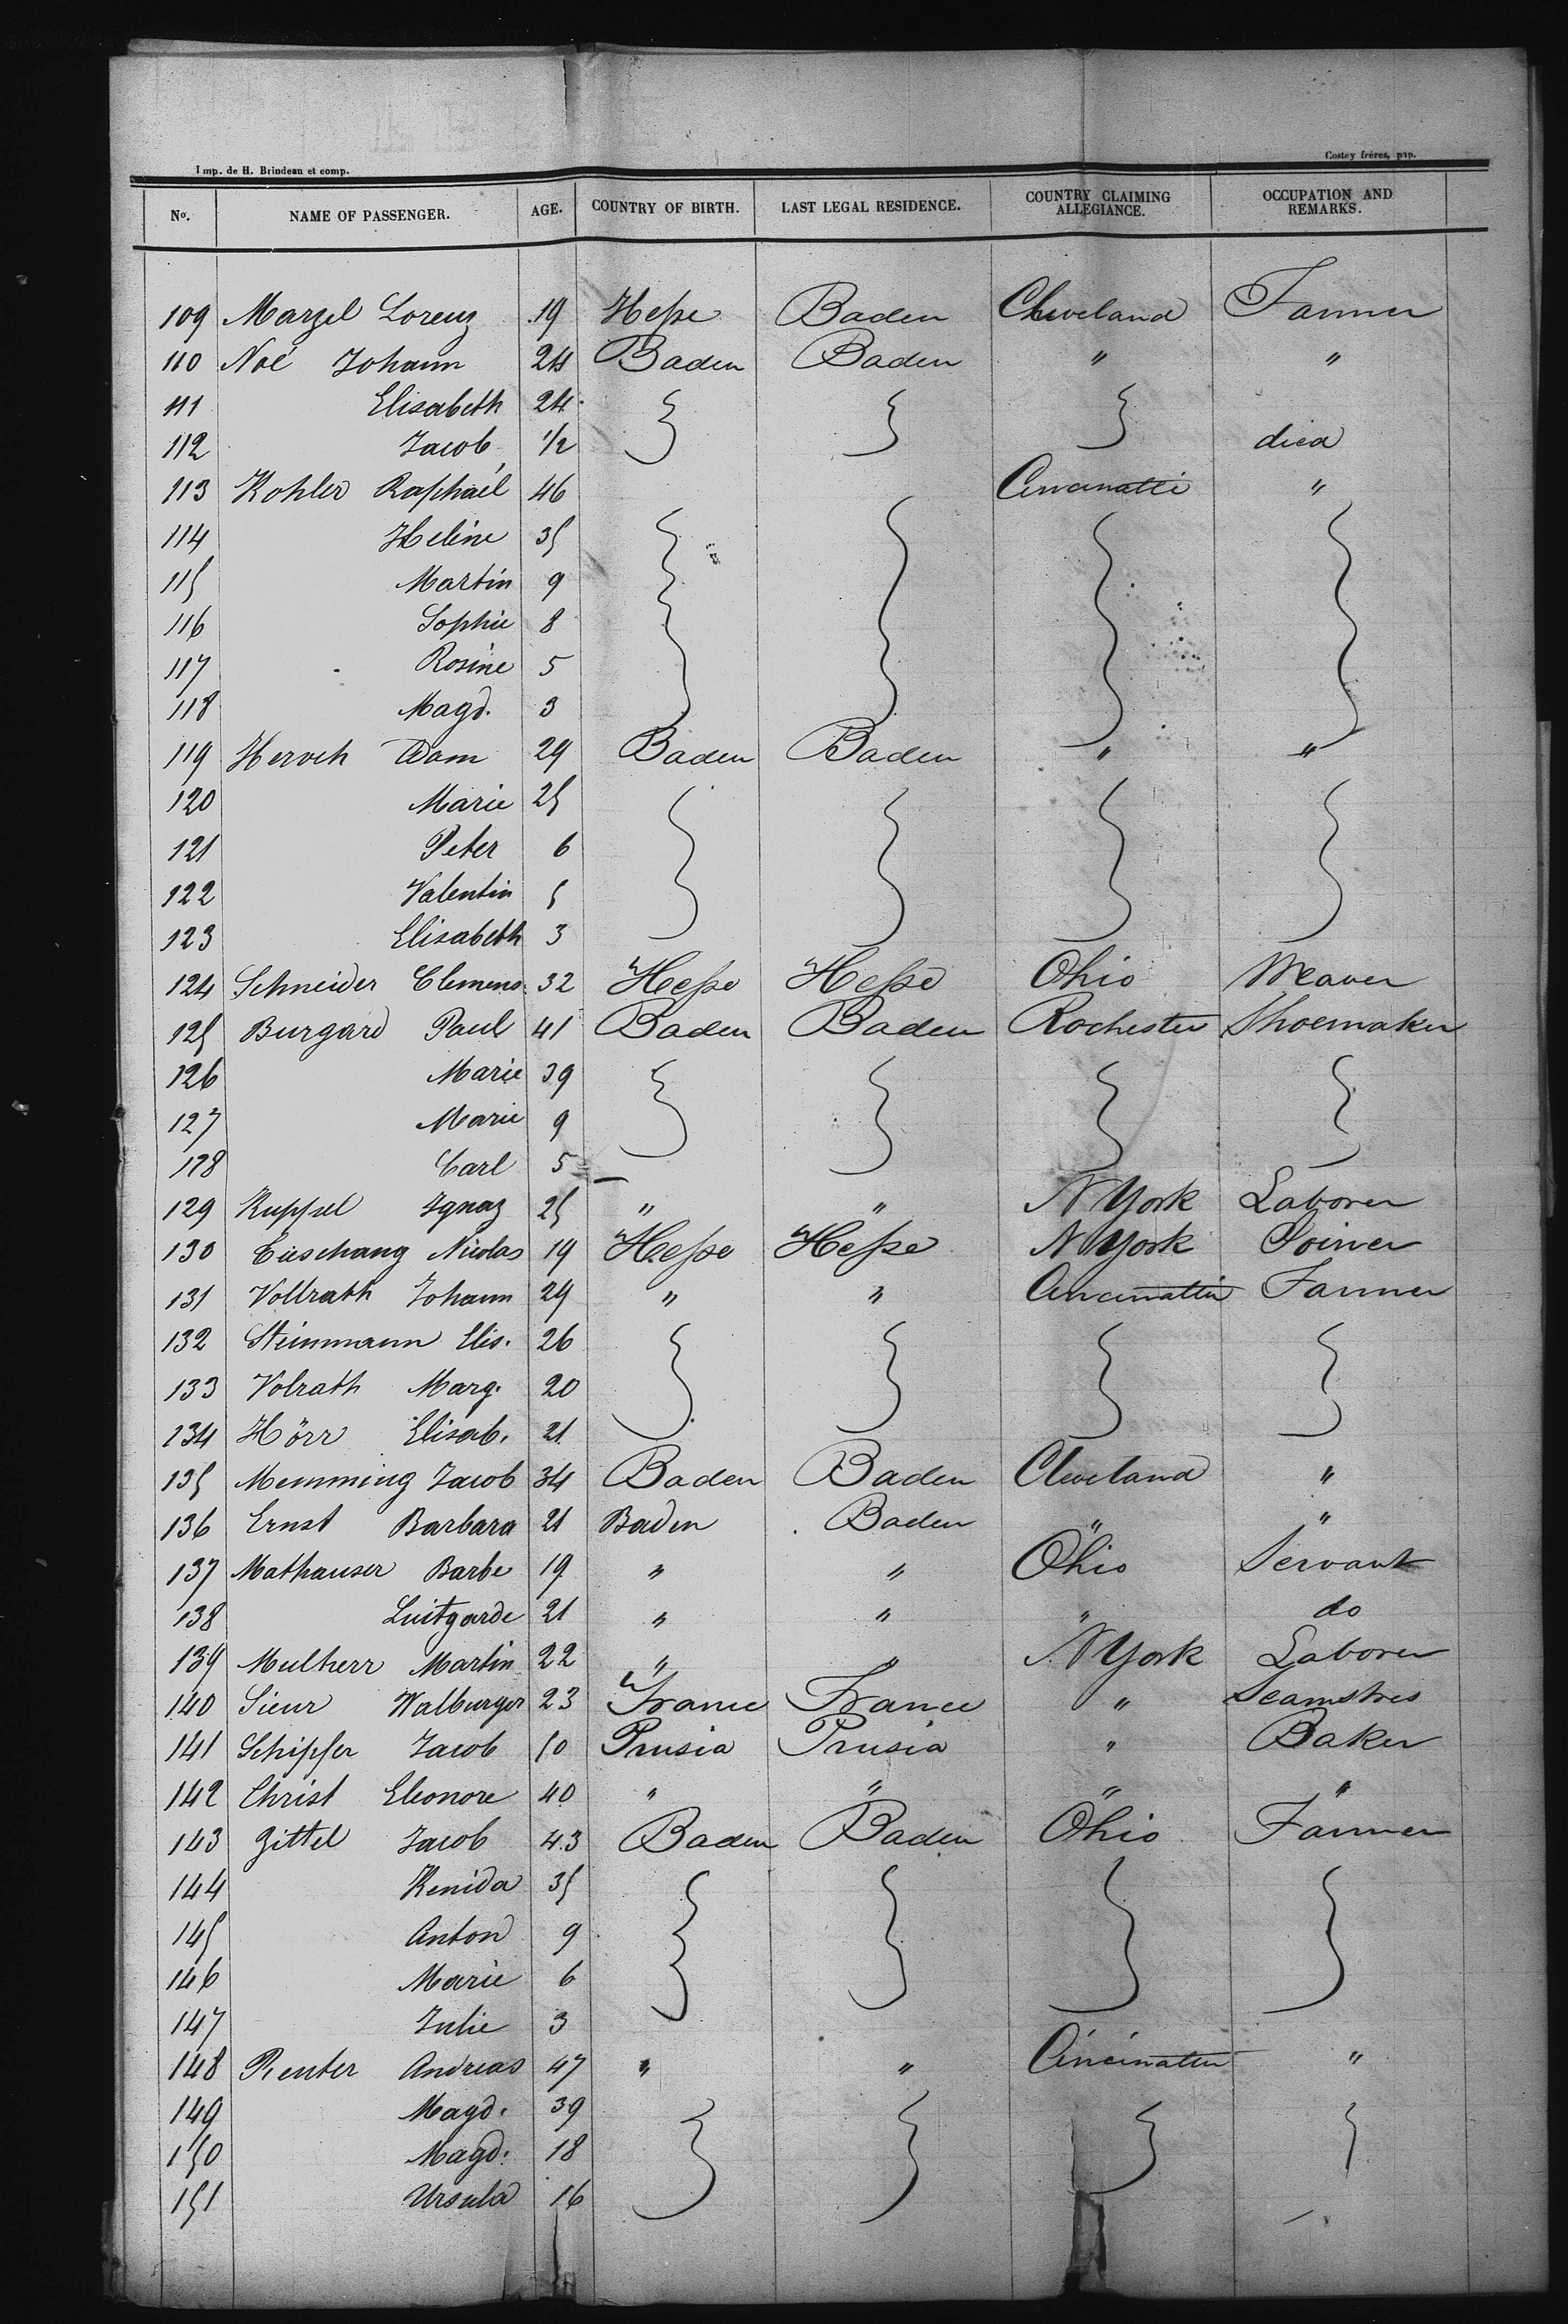 Imp. de H. Brindeau et comp. Costey frères, pap.
No. NAME OF PASSENGER. AGE. COUNTRY OF BIRTH. LAST LEGAL RESIDENCE. COUNTRY CLAIMING ALLEGIANCE. OCCUPATION AND REMARKS.
109 Marzel Lorenz 19 Hesse Baden Cleveland Farmer
110 Noé Johann 24 Baden Baden " "
111 Elisabeth 24
112 Jacob 1/2 died
113 Kohler Raphaël 46 Cincinatti "
114 Heline 35
115 Martin 9
116 Sophie 8
117 Rosine 5
118 Magd. 3
119 Heroch Adam 29 Baden Baden " "
120 Marie 25
121 Peter 6
122 Valentin 5
123 Elisabeth 3
124 Schneider Clemens 32 Hesse Hesse Ohio Weaver
125 Burgard Paul 41 Baden Baden Rochester Shoemaker
126 Marie 39
127 Marie 9
128 Carl 5
129 Ruppel Ignaz 25 " " N York Laborer
130 Nicolas 19 Hesse Hesse N York Joiner
131 Vollrath Johann 29 " " Cincinattin Farmer
132 Steinmann Elis. 26
133 Volrath Marg. 20
134 Hörr Elisab. 21
135 Memming Jacob 34 Baden Baden Cleveland "
136 Ernst Barbara 21 Baden Baden " "
137 Mathauser Barbe 19 " " Ohio Servant
138 Luitgarde 21 " " " do
139 Mulherr Martin 22 " " N York Laborer
140 Sieur Walburger 23 France France " Seamstres
141 Schipfer Jacob 50 Prusia Prusia " Baker
142 Christ Eleonore 40 " " " "
143 Zittel Jacob 43 Baden Baden Ohio Farmer
144 Renida 35
145 Anton 9
146 Marie 6
147 Julie 3
148 Renter Andreas 47 " " Cincinattin "
149 Magd. 39
150 Magd. 18
151 Ursula 16